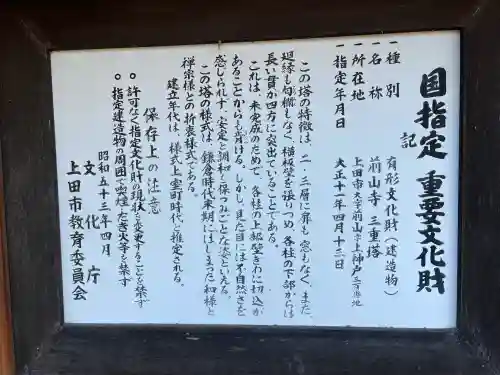 国指定 重要文化財
記
一種別 有形文化財(建造物)
一名称 前山寺 三重塔
一所在地 上田市大字前山字上神戸三百番地
一指定年月日 大正十一年四月十三日
この塔の特徴は、二・三層に扉も窓もなく、また、
廻縁も勾欄もなく、横板壁を張りつめ、各柱の下部からは
長い貫が四方に突出ていることである。
これは、未完成のためで、各柱の上部壁ぎわに切込が
あることからも肯ける。しかし、見た目には不自然さを
感じられず、安定と調和を保つみごとな姿といえる。
この塔の様式は、鎌倉時代末期にはじまった和様と
禅宗様との折衷様式である。
建立年代は、様式上室町時代と推定される。
保存上の注意
○ 許可なく指定文化財の現状を変更することを禁ず
○ 指定建造物の周囲で喫煙・たき火等を禁ず
昭和五十三年四月
文化庁
上田市教育委員会